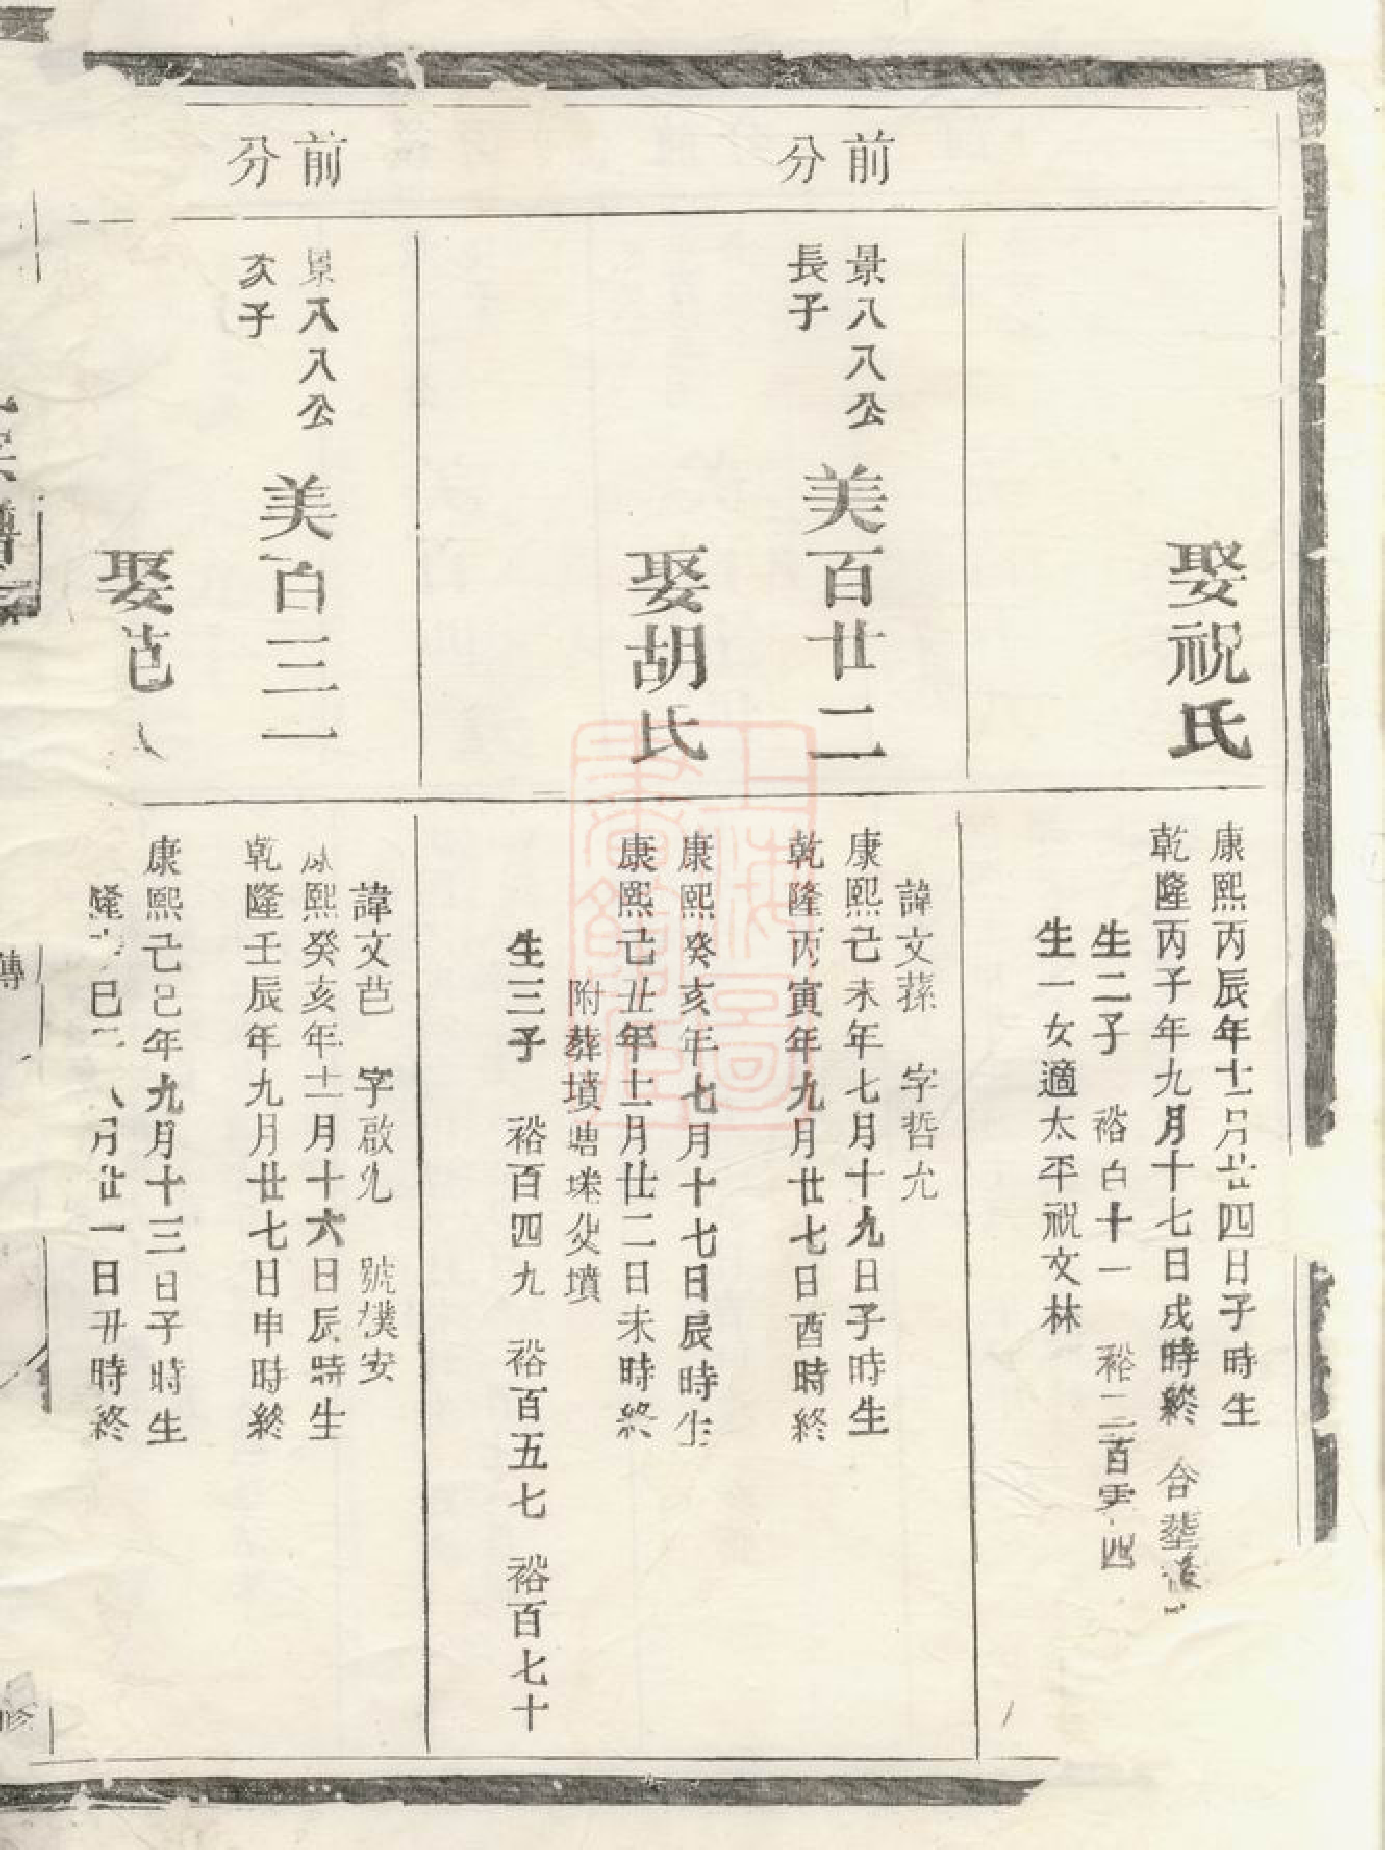 娶祝氏
康熙丙辰年十二月廿四日子時生
乾隆丙子年九月十七日戌時終 合塟
生二子 裕百十一 裕二百零四
生一女適太平祝文林
前分
景八八公
長子
美百廿二
諱文蓀 字哲允
康熙己未年七月十九日子時生
乾隆丙寅年九月廿七日酉時終
娶胡氏
康熙癸亥年七月十七日辰時生
康熙己丑年十二月廿二日未時終
附葬墳塘父墳
生三子 裕百四九 裕百五七 裕百七十
前分
景八八公
次子
美百三一
諱文芑 字啟允 號樸安
康熙癸亥年十二月十六日辰時生
乾隆壬辰年九月廿七日申時終
娶芭
康熙己巳年九月十三日子時生
隆巳月廿一日丑時終